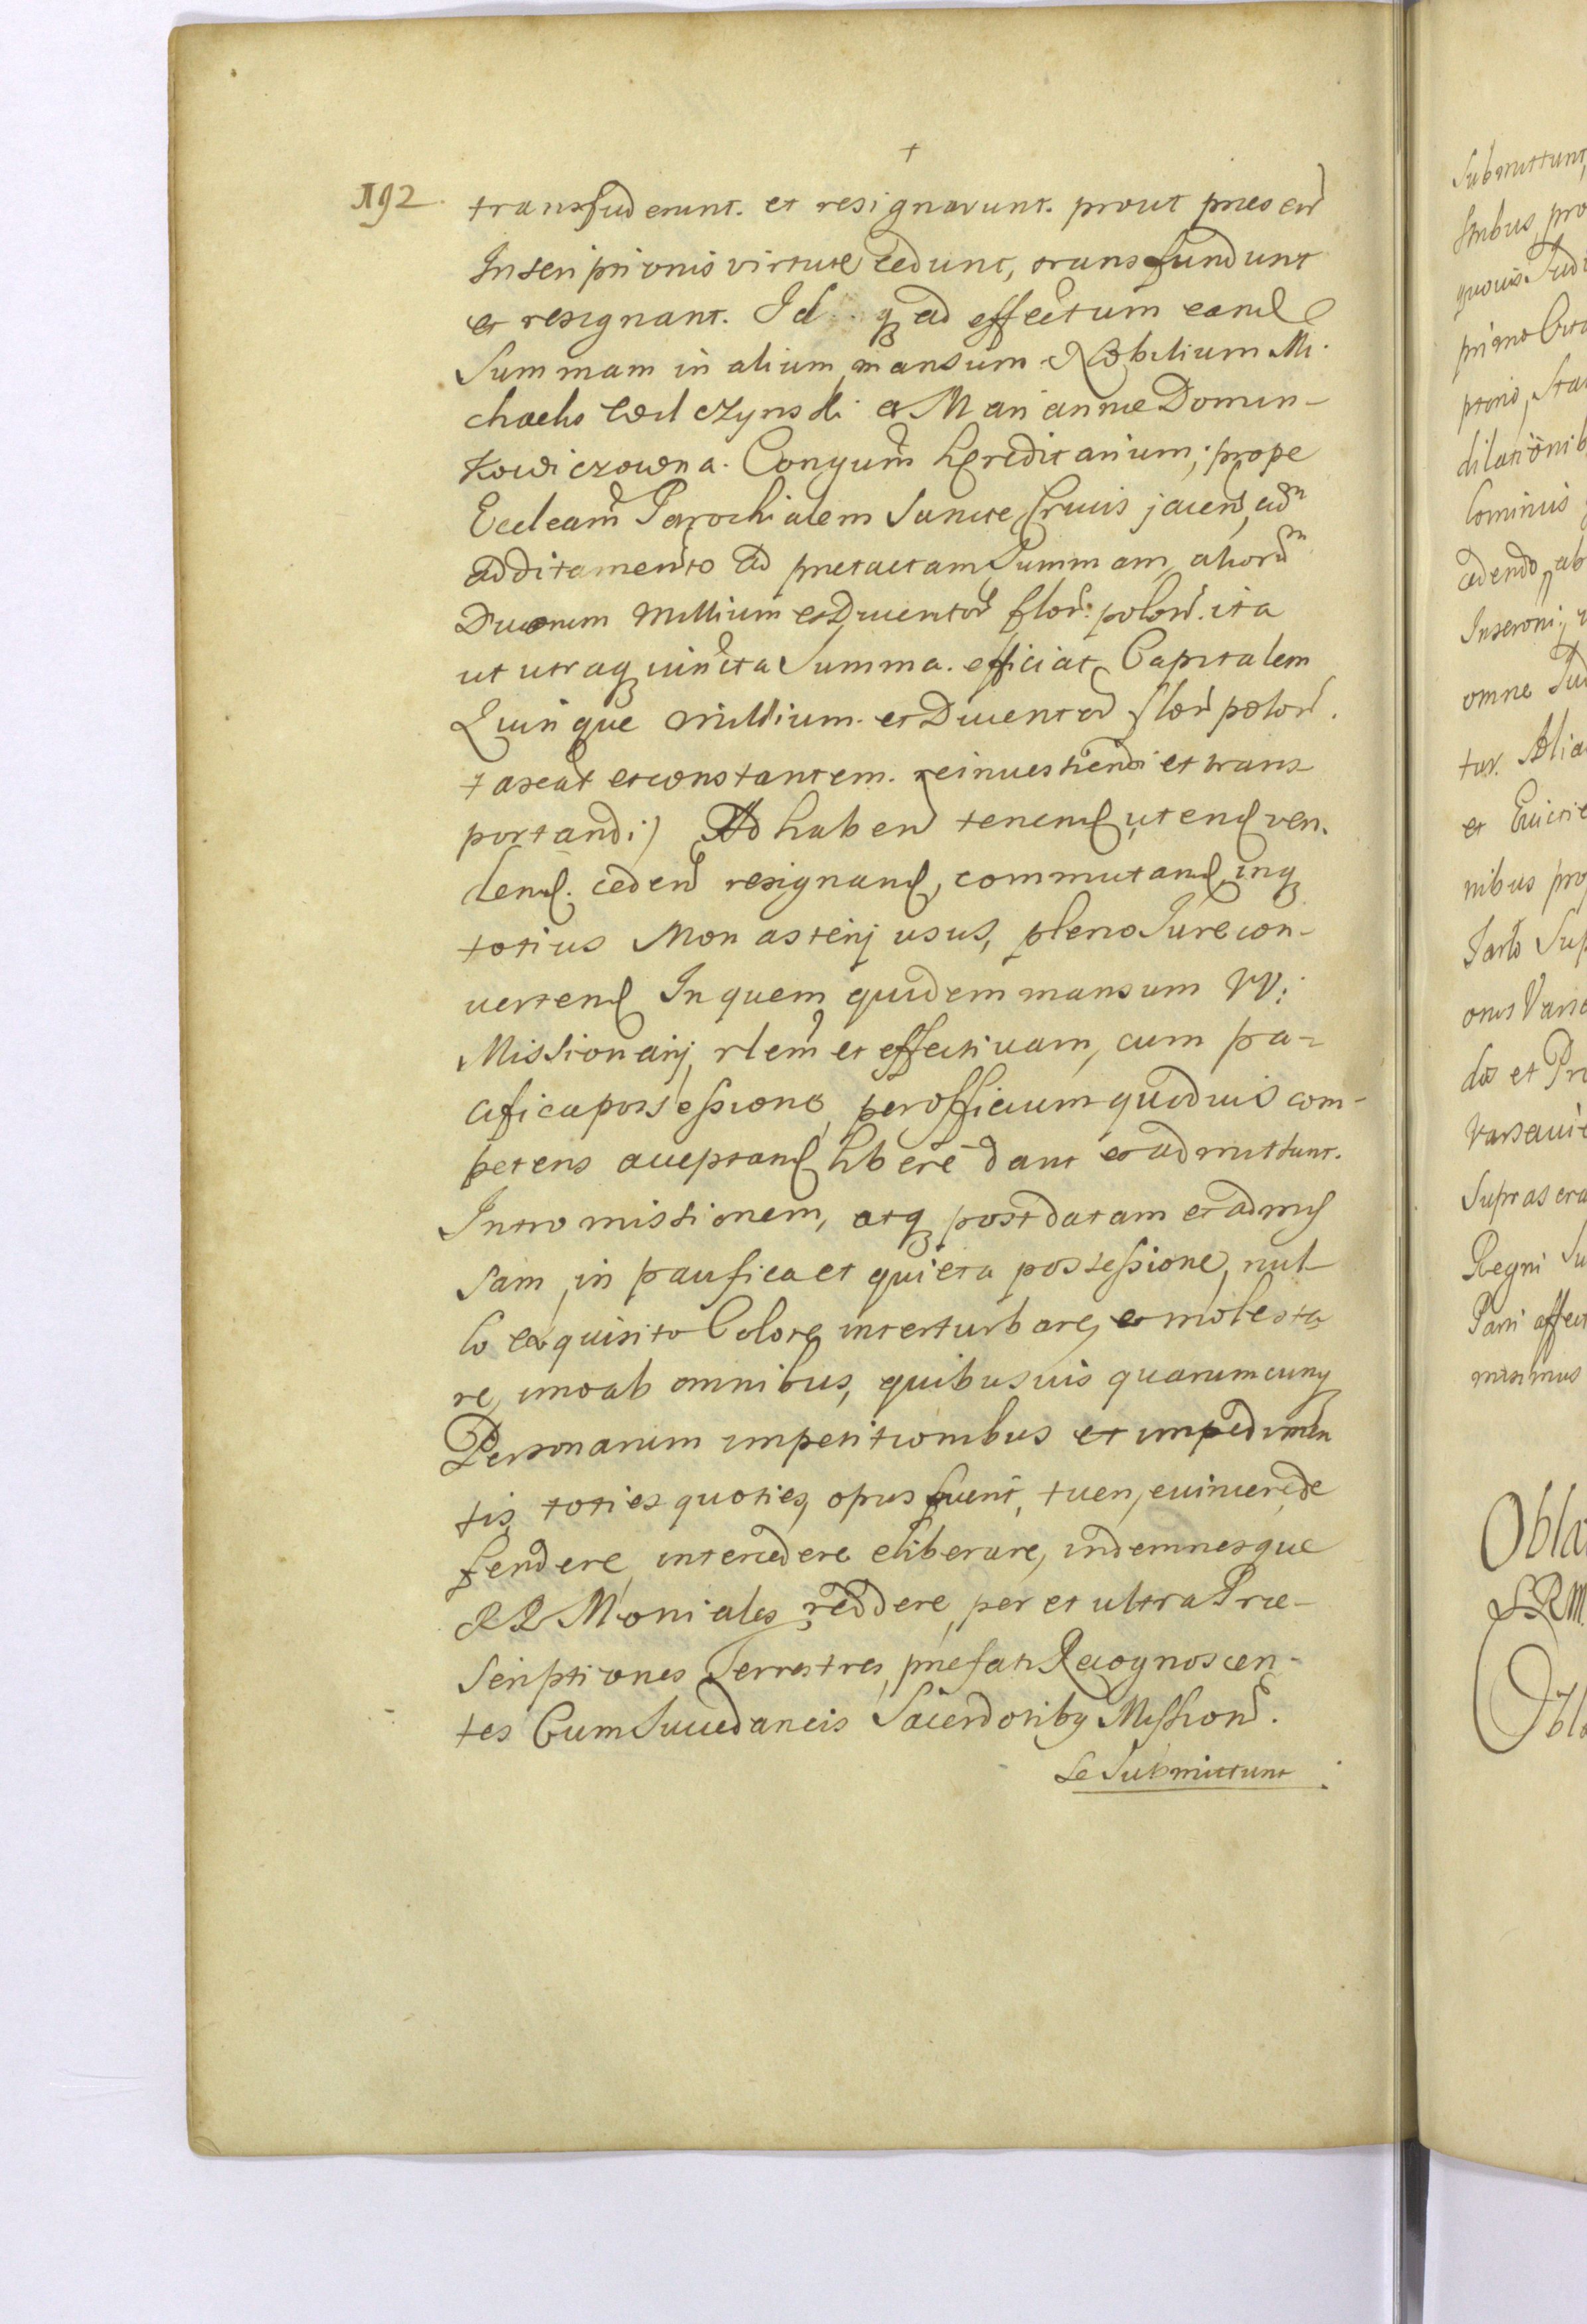 +
192.
transfuderunt. et resignarunt. prout præsen
Inscriptionis virtute cedunt, transfundunt
et resignant. Id q ad effectum eand
Summam in alium mansum Nobilium Mi-
chaelis Wilczynski et Mariannæ Domin-
kowiczowna. Conjugum hæreditarium, prope
Eccleam Parochialem Sanctæ Crucis jacen, cum
additamento ad prætactam Summam, alioru
Duorum Millium et Ducentor flor: polon. ita
ut utraq iuncta Summa. efficiat Capitalem
Quinque millium. et Ducentor flor polon.
taxeat et constantem. reinvestiendi et trans
portandi) Ad haben tenend utend ven-
dend. ceden resignand, commutand, inq
totius Monasterij usus, pleno Jure con-
vertend In quem quidem mansum VV:
Missionarij, rlem et effectivam, cum pa-
cifica possessione, per officium quodvis com-
petens acceptand libere dant et admittunt.
Intromissionem, atq post datam et admis
sam, in pacifica et quieta possessione, nul-
lo exquisito Colore interturbare, et molesta
re, imo ab omnibus, quibusvis quarumcunq
Personarum impetitionibus et impedimen
tis, toties quoties, opus fuerit, tueri, evincere, de
fendere, intercedere eliberare, indemnesque
RR Moniales, reddere, per et ultra Præ-
scriptiones Terrestres, præfati Recognoscen-
tes Cum Succedaneis Sacerdotibq Mission.
se Submittunt
Submittunt,
pro
quovis Judi
primo
ptionis, Sta
dilationib
cominus
cedendo, ab
Inseroni.,
omne Jud
tur. Alia
et Evictie
nibus pro
facto Sup
Vars
dos et Pr
Varsavie
Suprascra
Regni Su
Pari affect
minimus
Obla
S.R.M.
Obla